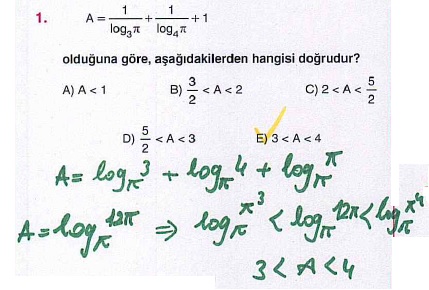 1. A = 1/log₃π + 1/log₄π + 1
olduğuna göre, aşağıdakilerden hangisi doğrudur?
A) A < 1 B) 3/2 < A < 2 C) 2 < A < 5/2
D) 5/2 < A < 3 E) 3 < A < 4
A = log_π 3 + log_π 4 + log_π π
A = log_π 12π ⇒ log_π π³ < log_π 12π < log_π π⁴
3 < A < 4